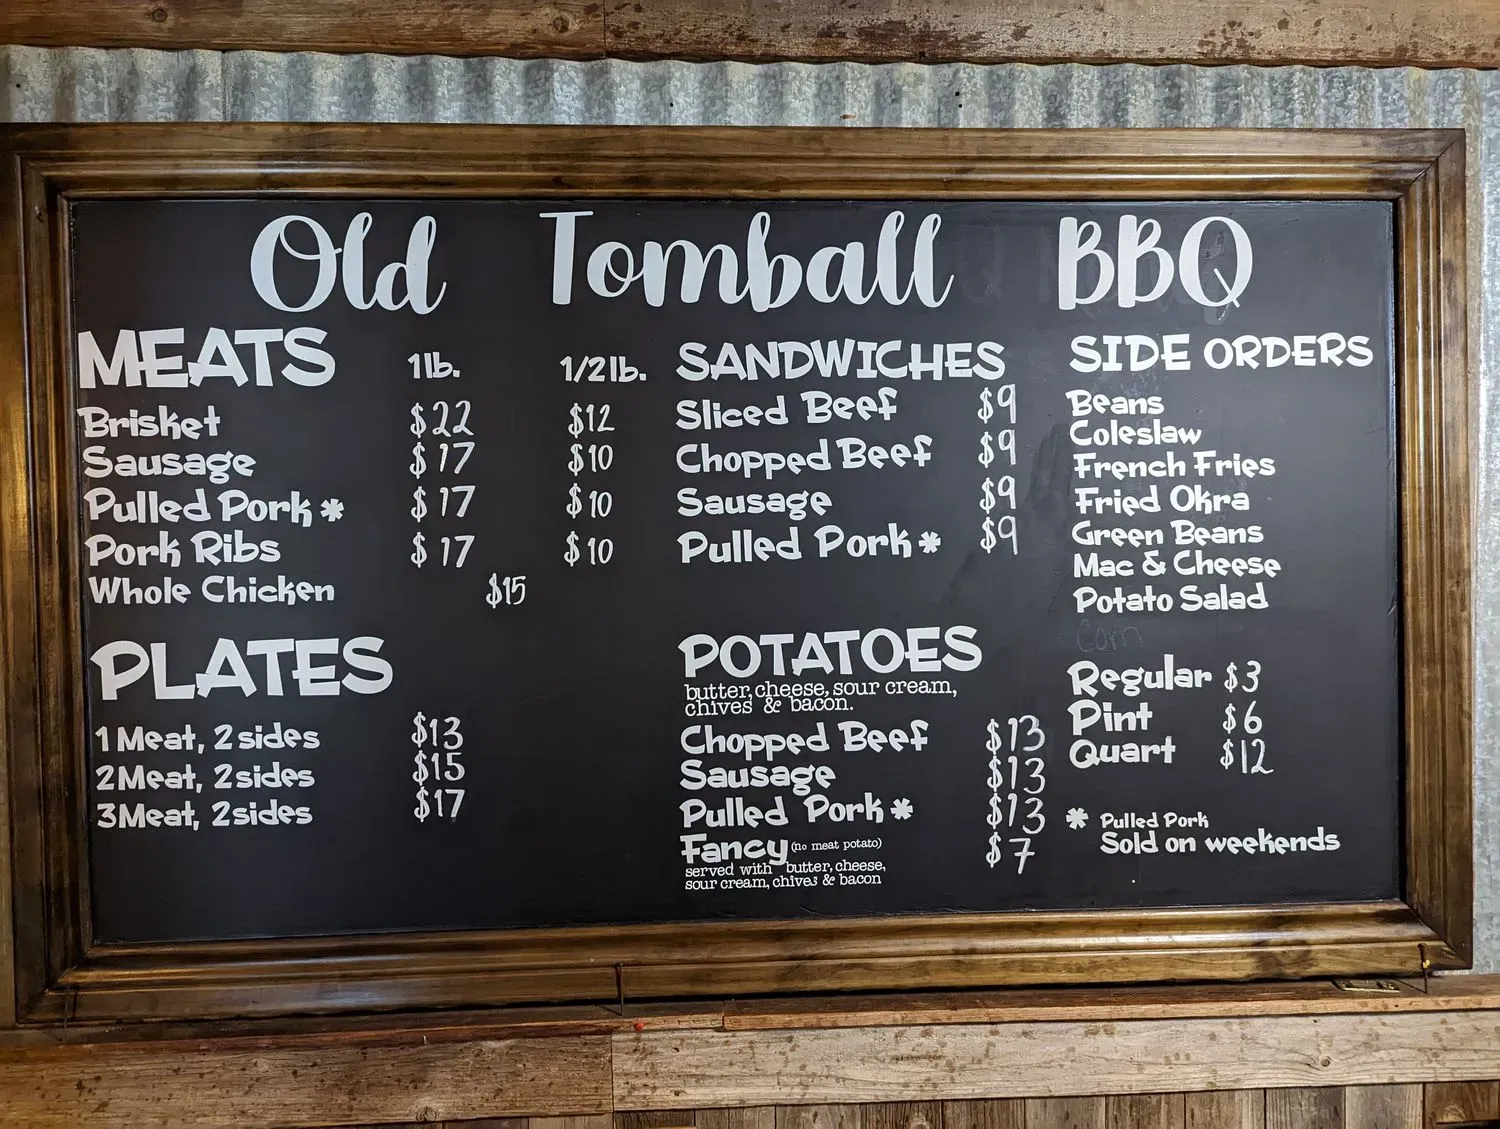 Old Tomball BBQ
MEATS 1lb. 1/2lb.
Brisket $22 $12
Sausage $17 $10
Pulled Pork * $17 $10
Pork Ribs $17 $10
Whole Chicken $15
PLATES
1 Meat, 2 sides $13
2 Meat, 2 sides $15
3 Meat, 2 sides $17
SANDWICHES
Sliced Beef $9
Chopped Beef $9
Sausage $9
Pulled Pork * $9
POTATOES
butter, cheese, sour cream,
chives & bacon.
Chopped Beef $13
Sausage $13
Pulled Pork * $13
Fancy (no meat potato) $7
served with butter, cheese,
sour cream, chives & bacon
SIDE ORDERS
Beans
Coleslaw
French Fries
Fried Okra
Green Beans
Mac & Cheese
Potato Salad
Corn
Regular $3
Pint $6
Quart $12
* Pulled Pork
Sold on weekends